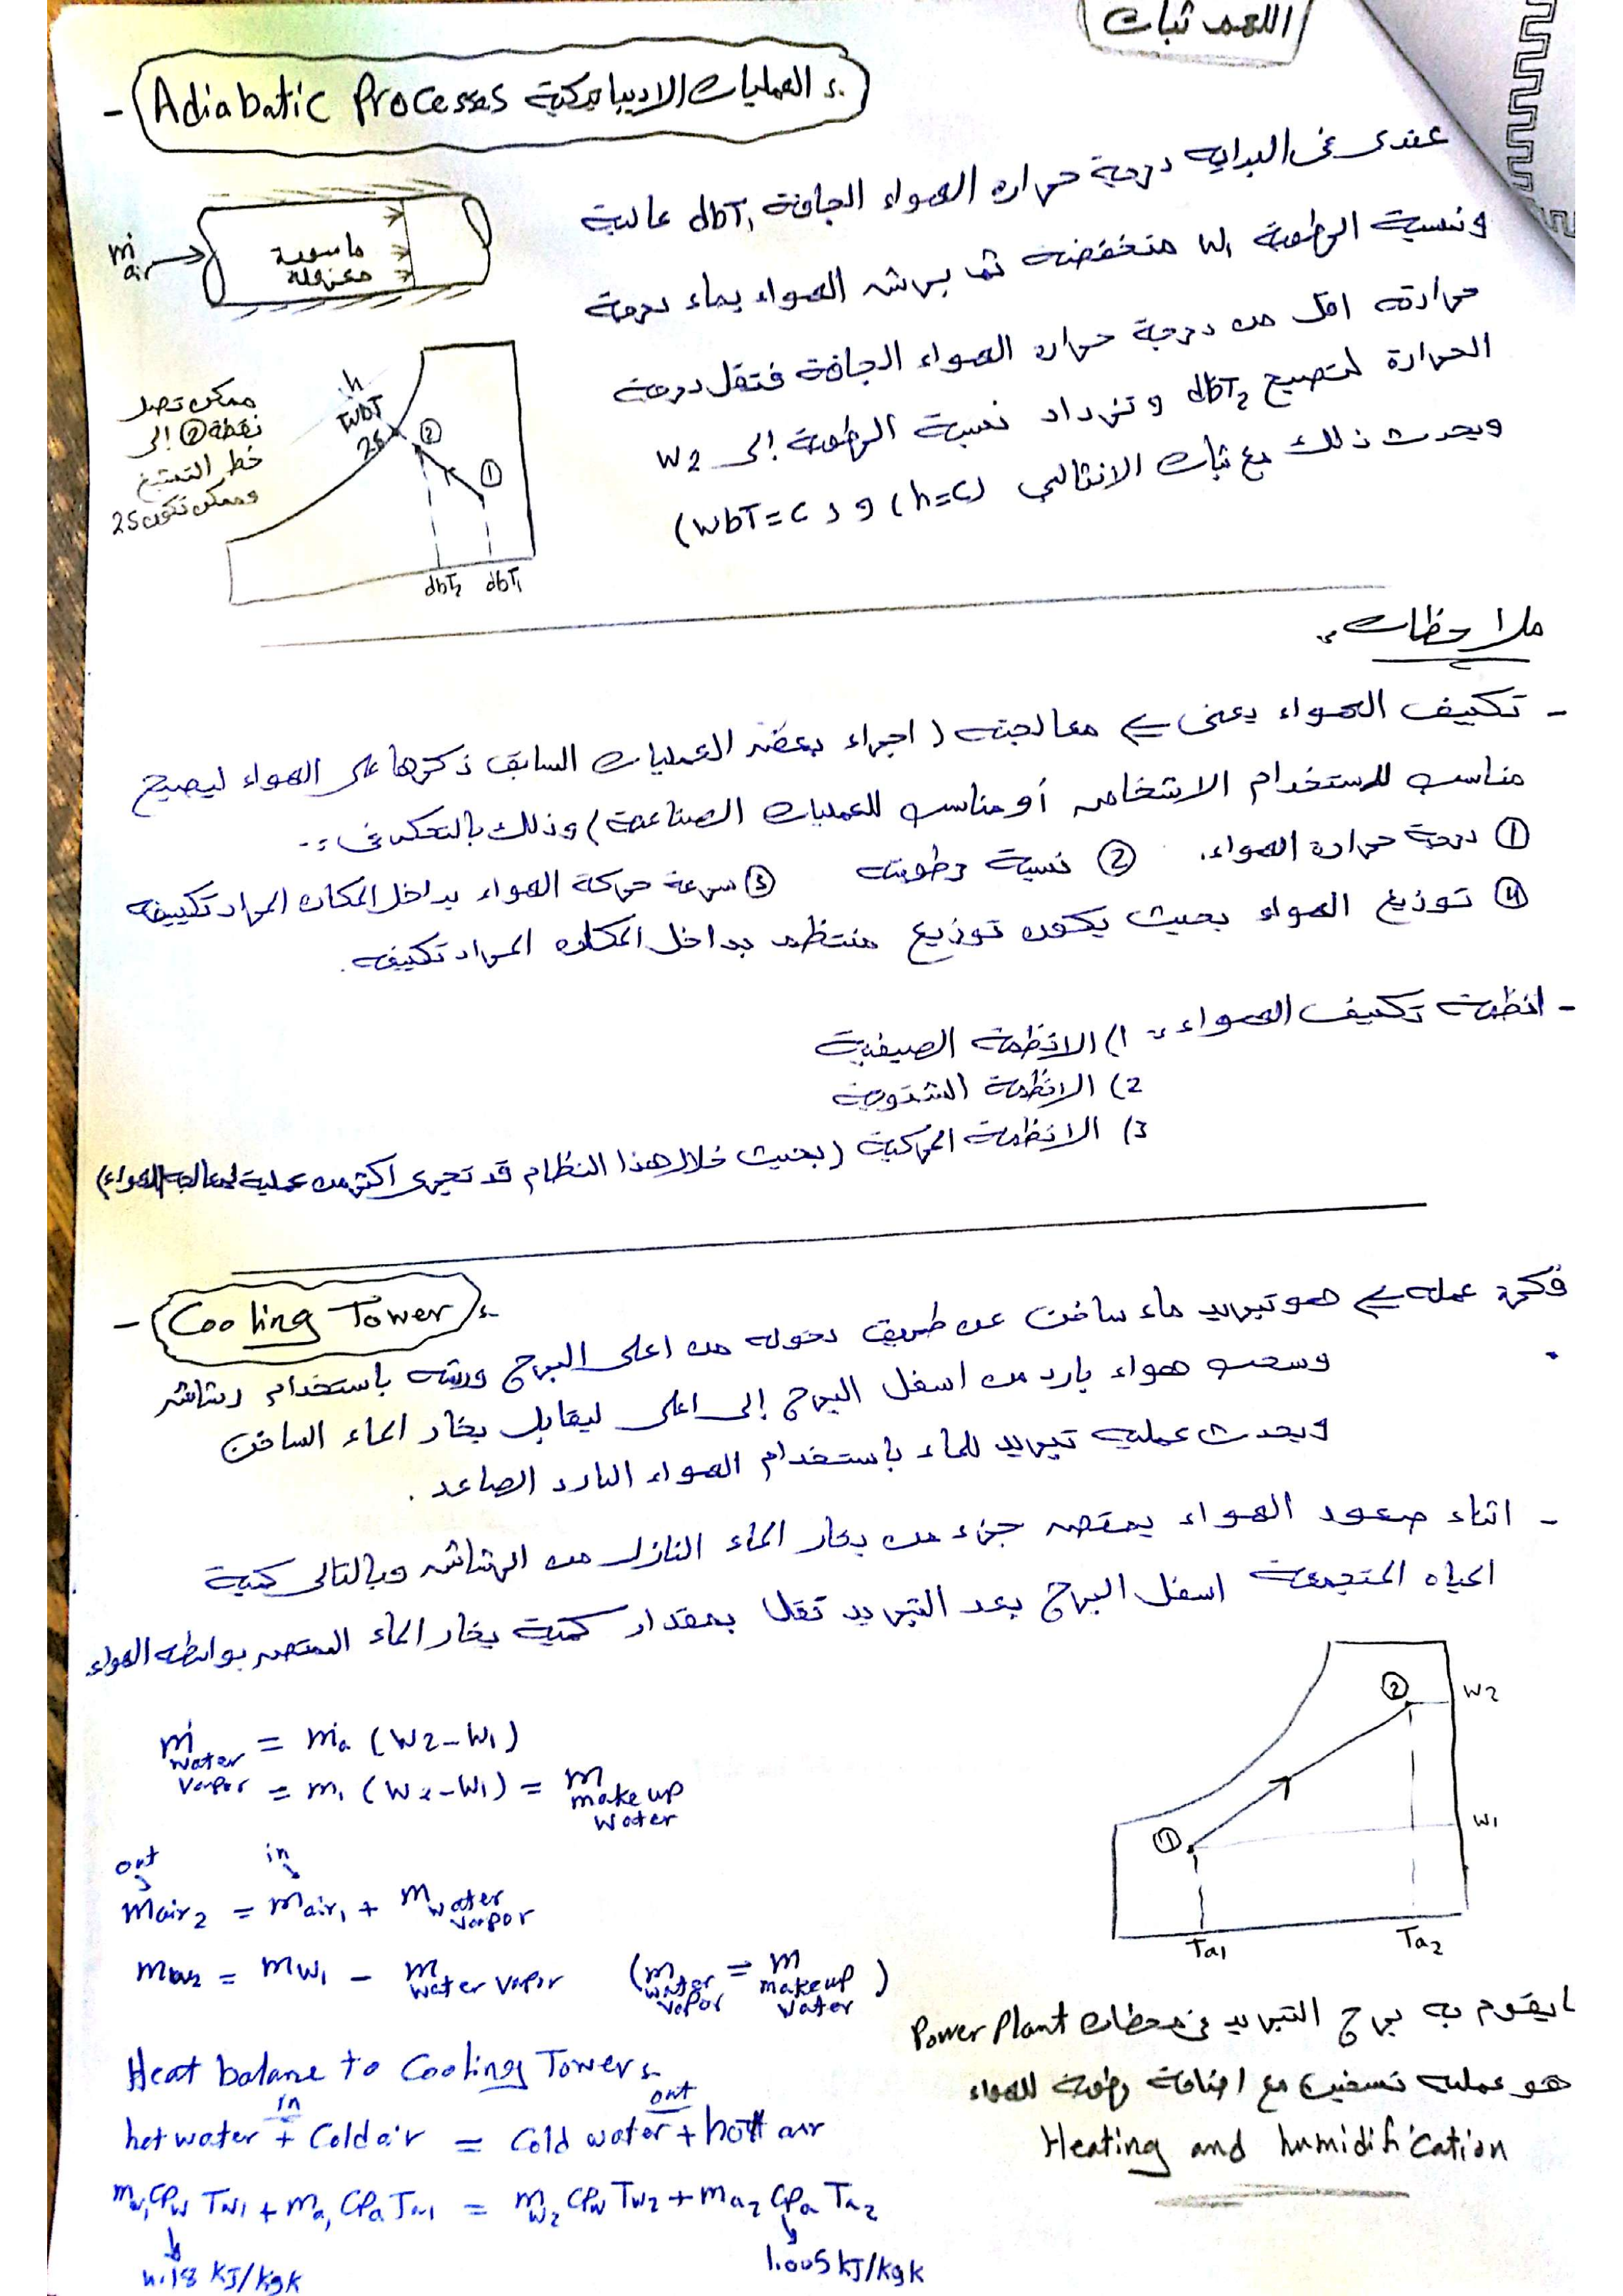 اللهم ثبات
- Adiabatic Processes العمليات الاديباتيكية :-
عندى فى البداية درجة حرارة الهواء الجافة dbT₁ عالية
ونسبة الرطوبة W₁ منخفضة ثم برش الهواء بماء درجة
حرارته اقل من درجة حرارة الهواء الجافة فتقل درجة
الحرارة لتصبح dbT₂ وتزداد نسبة الرطوبة إلى W2
ويحدث ذلك مع ثبات الانثالبي (h=c) و (wbT=c)
ṁ air
ماسورة
معزولة
h
TWbT
25
②
①
dbT₂ dbT₁
ممكن تصل
نقطة ② إلى
خط التشبع
وممكن تكون 2S
ملاحظات :-
- تكييف الهواء يعنى معالجته (اجراء بعض العمليات السابق ذكرها على الهواء ليصبح
مناسب لاستخدام الاشخاص أو مناسب للعمليات الصناعية) وذلك بالتحكم فى :-
① درجة حرارة الهواء. ② نسبة رطوبته ③ سرعة حركة الهواء بداخل المكان المراد تكييفه
④ توزيع الهواء بحيث يكون توزيع منتظم بداخل المكان المراد تكيفه.
- انظمة تكييف الهواء :- 1) الانظمة الصيفية
2) الانظمة الشتوية
3) الانظمة المركبة (بحيث خلال هذا النظام قد تجرى اكثر من عملية لمعالجة الهواء)
- Cooling Tower :-
فكرة عمله هو تبريد ماء ساخن عن طريق دخوله من اعلى البرج ورشه باستخدام رشاش
وسحب هواء بارد من اسفل البرج إلى اعلى ليقابل بخار الماء الساخن
ويحدث عملية تبريد للماء باستخدام الهواء البارد الصاعد.
- اثناء صعود الهواء يمتص جزء من بخار الماء النازل من الرشاش وبالتالى كمية
المياه المتجمعة اسفل البرج بعد التبريد تقل بمقدار كمية بخار الماء الممتص بواسطة الهواء
ṁ water vapor = ṁa (W2-W1)
= m₁ (W2-W1) = m make up water
out in
mair₂ = mair₁ + m water vapor
mw₂ = mw₁ - m water vapor (m water vapor = m makeup water)
②
W2
①
W1
Ta₁ Ta₂
Heat balane to Cooling Tower :-
in out
hot water + Cold air = Cold water + hott air
mw₁ CPw Tw1 + ma₁ CPa Ta1 = mw₂ CPw Tw2 + ma₂ CPa Ta₂
4.18 KJ/kgk
1.005 kJ/kgk
ما يقوم به برج التبريد فى محطات Power Plant
هو عملية تسخين مع اضافة رطوبة للهواء
Heating and humidification